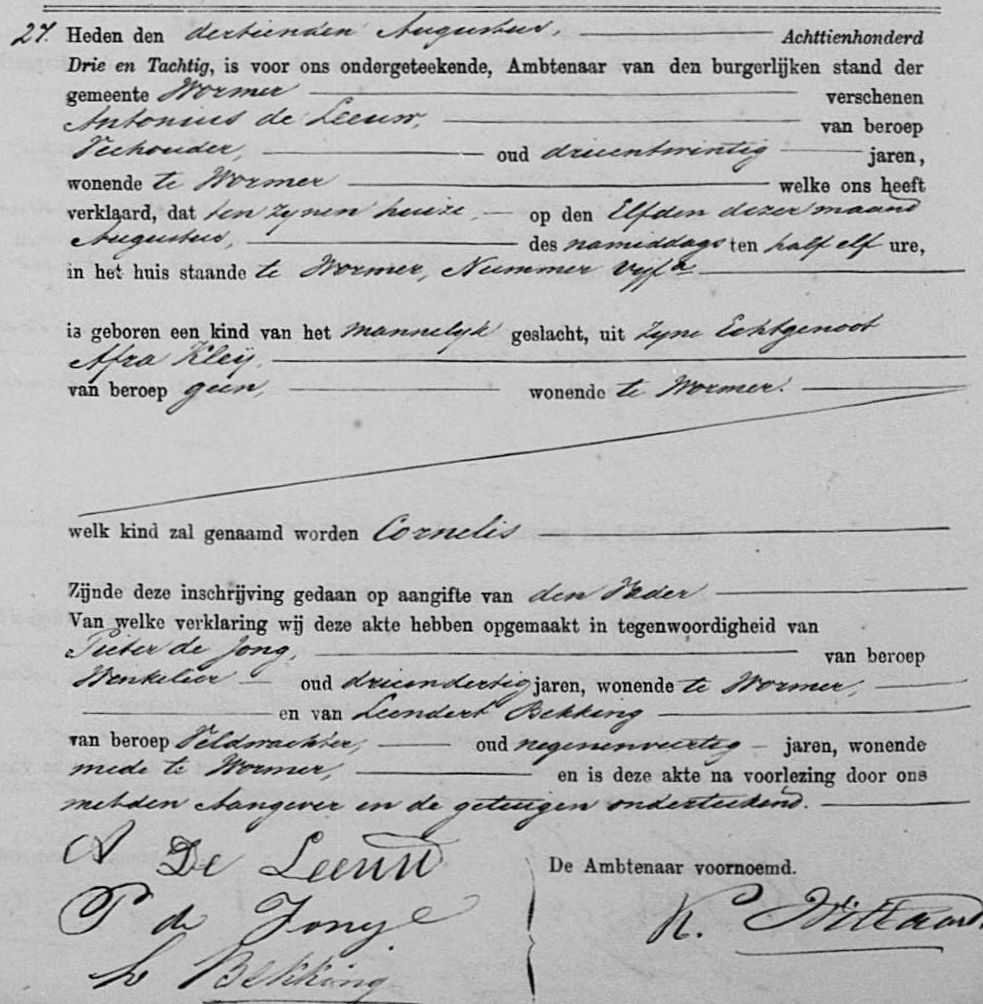 27. Heden den dertienden Augustus, Achttienhonderd
Drie en Tachtig, is voor ons ondergeteekende, Ambtenaar van den burgerlijken stand der
gemeente Wormer verschenen
Antonius de Leeuw, van beroep
Veehouder, oud drieentwintig jaren,
wonende te Wormer welke ons heeft
verklaard, dat ten zynen huize, op den Elfden dezer maand
Augustus, des namiddags ten half elf ure,
in het huis staande te Wormer, Nummer vijf a
is geboren een kind van het mannelyk geslacht, uit zyne Echtgenoot
Afra Kleij,
van beroep geen, wonende te Wormer.
welk kind zal genaamd worden Cornelis
Zijnde deze inschrijving gedaan op aangifte van den Vader
Van welke verklaring wij deze akte hebben opgemaakt in tegenwoordigheid van
Pieter de Jong, van beroep
Winkelier oud drieendertig jaren, wonende te Wormer,
en van Leendert Bekking
van beroep Veldwachter, oud negenenveertig jaren, wonende
mede te Wormer, en is deze akte na voorlezing door ons
met den Aangever en de getuigen onderteekend.
A De Leeuw
De Ambtenaar voornoemd.
P de Jonge
K.
L Bekking